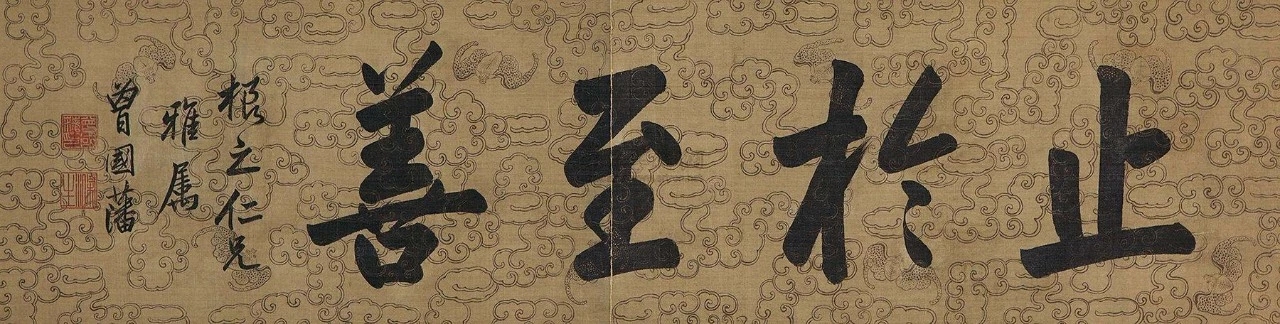 止於至善
根之仁兄
雅属
曾國藩